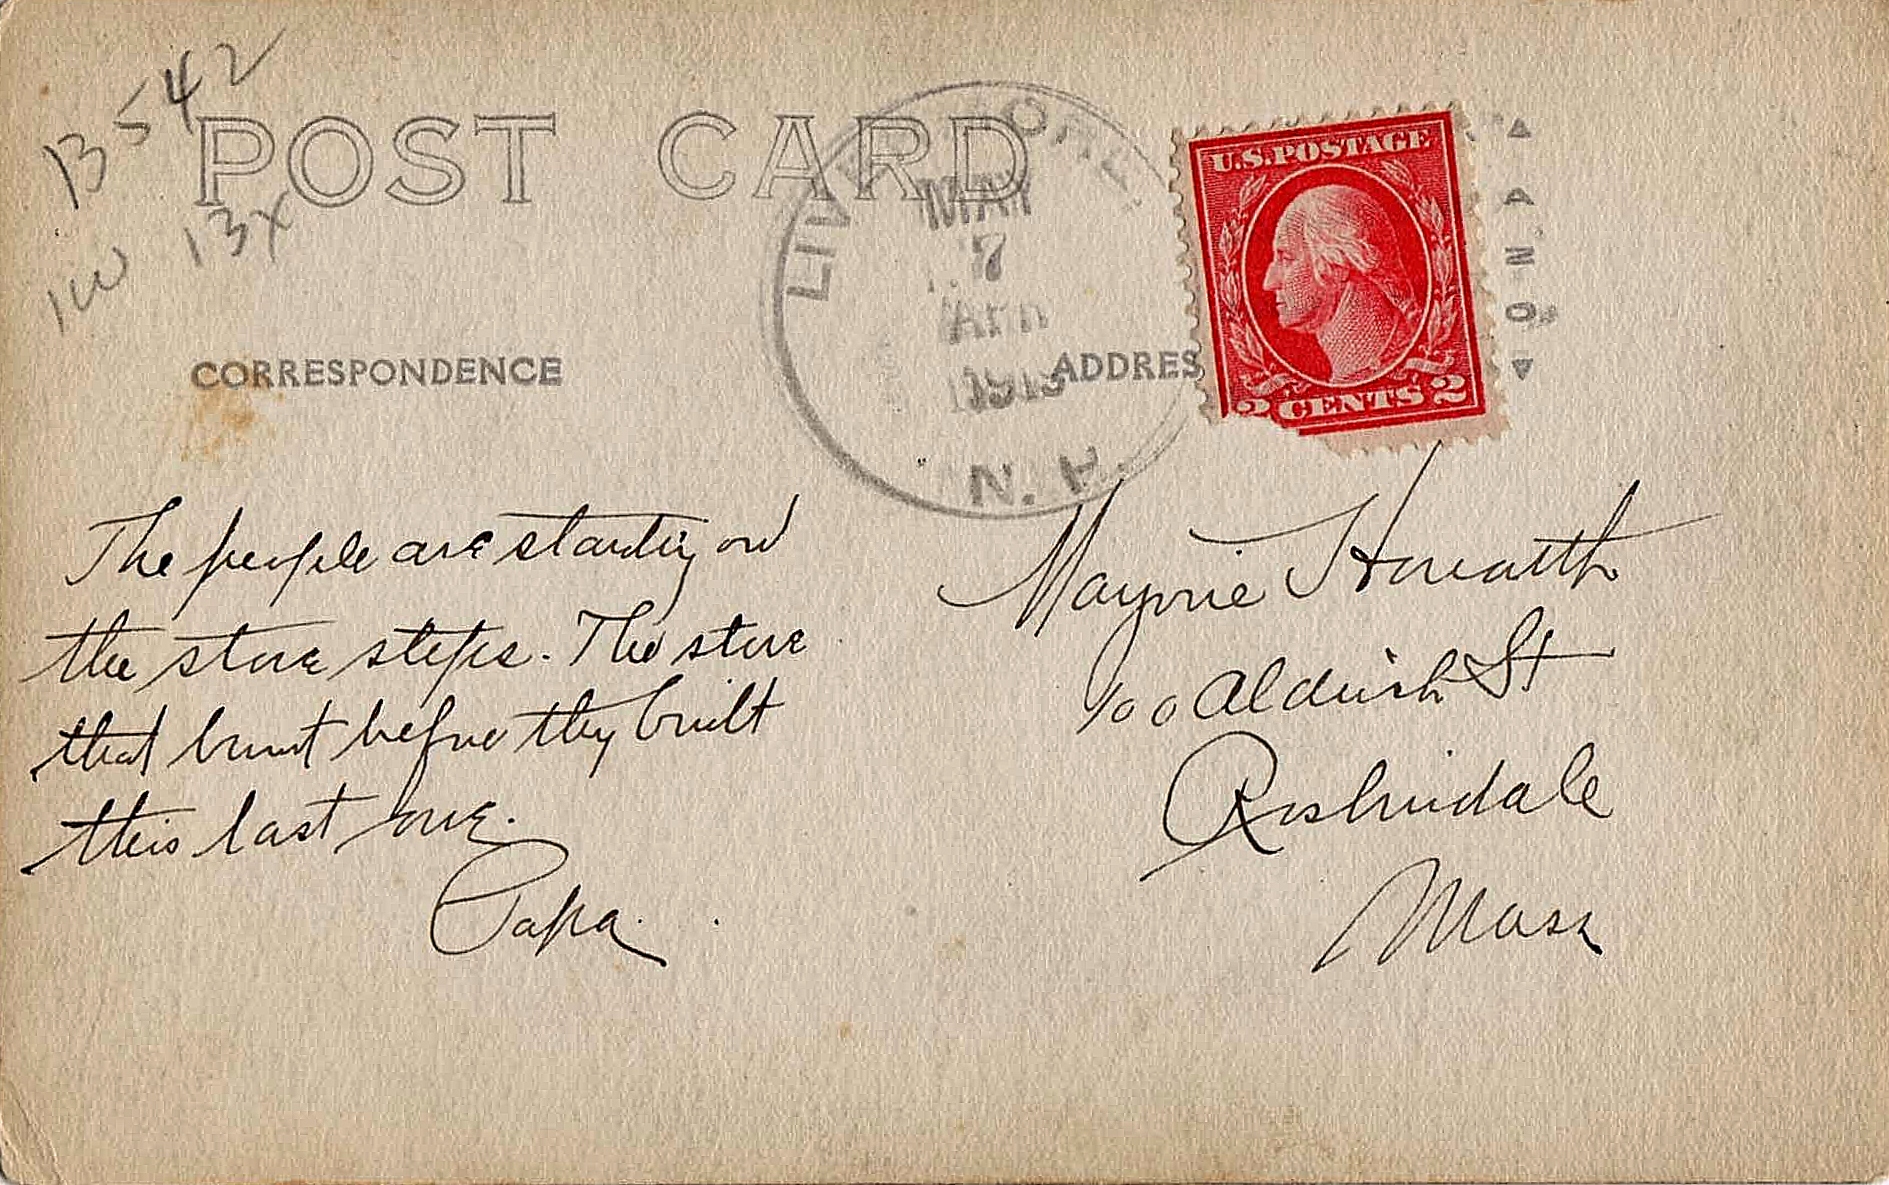 B 542
POST CARD
13x
LIVERMORE,
MAY
7
N.H.
U.S.POSTAGE
2 CENTS 2
AZO
CORRESPONDENCE
ADDRES
The people are standing on
the store steps. The store
that burnt before they built
this last one.
Papa.
Marjorie Howarth
100 Aldrich St
Roslindale
Mass